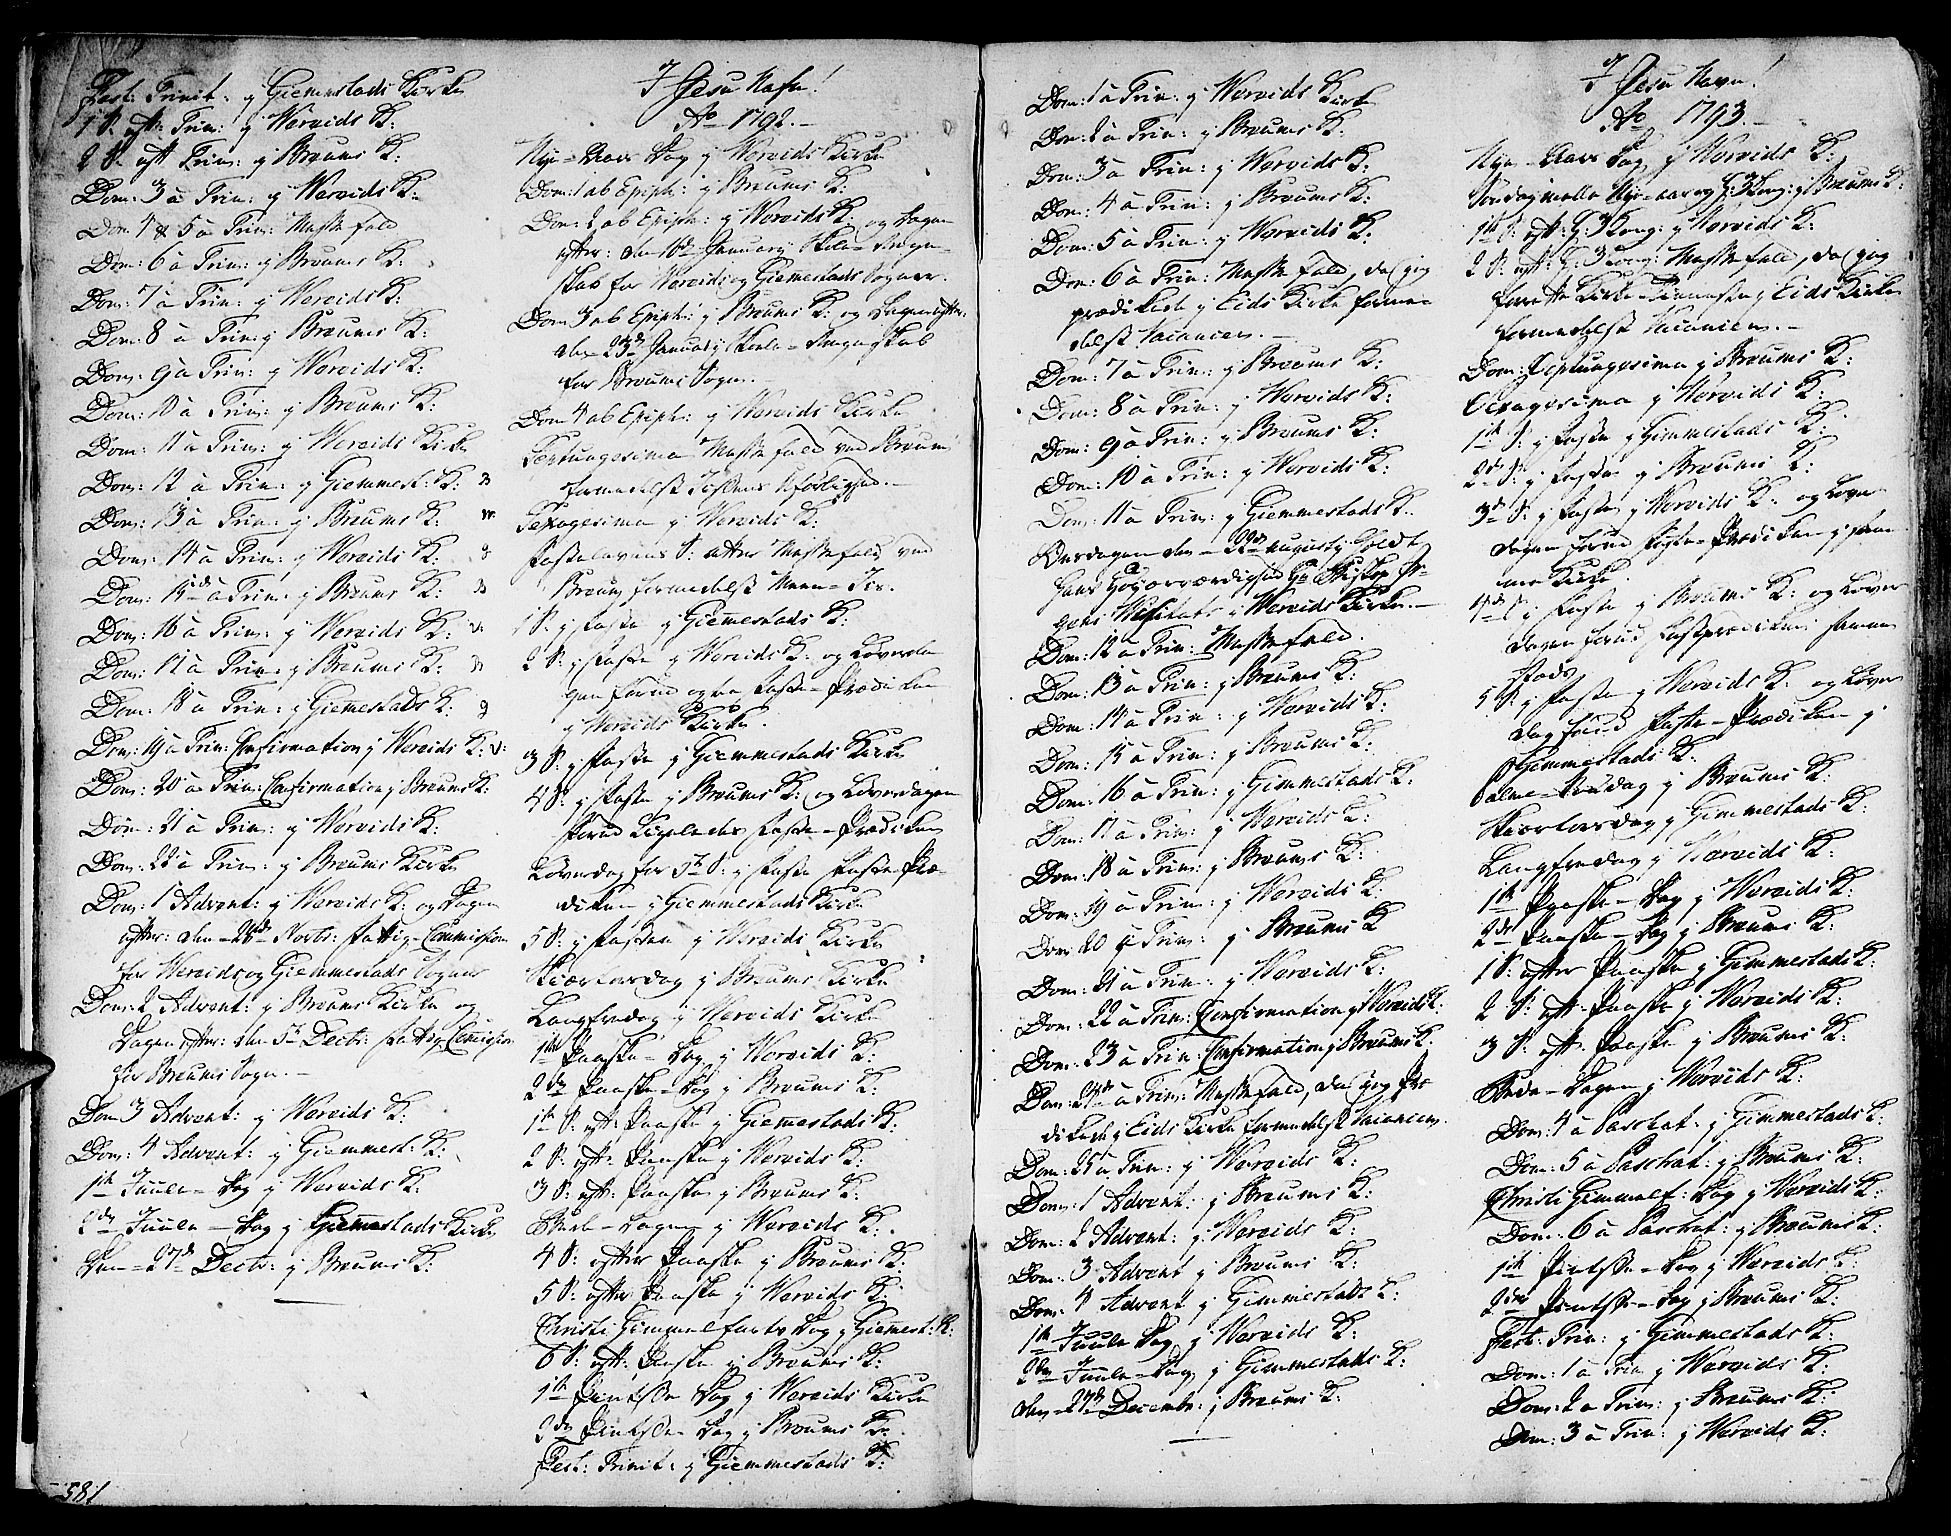 Fest: Trinit: y Giemmestads Kirke
1 S: eft: Trin: y Wereids K:
2 S: eft Trin: y Breums K:
Dom: 3 à Trin: y Wereids K:
Dom 4 & 5 à Trin: Messefald
Dom: 6 à Trin: y Breums K:
Dom: 7 à Trin: y Wereids K:
Dom: 8 à Trin: y Breums K:
Dom: 9 à Trin: y Wereids K:
Dom: 10 à Trin: y Breums K:
Dom: 11 à Trin: y Wereids Kirke
Dom: 12 à Trin: y Giemmest: K:
Dom: 13 à Trin: y Breums K:
Dom: 14 à Trin: y Wereids K:
Dom: 15 à Trin: y Breums K:
Dom: 16 à Trin: y Wereids K:
Dom: 17 à Trin: y Breums K:
Dom: 18 à Trin: y Giemestads K:
Dom: 19 à Trin: Confirmation y Wereids K:
Dom: 20 à Trin: Confirmation y Breums K:
Dom: 21 à Trin: y Wereids K:
Dom: 22 à Trin: y Breums Kirke
Dom: 1 Advent: y Wereids K: og Dagen
efter: den 28de Novbr: Fattig-Commission
for Wereids og Giemmestads Sogner
Dom: 2 Advent: y Breums Kirke og
Dagen efter: den 5te Decbr: Fattig-Commission
for Breums Sogn.
Dom 3 Advent: y Wereids K:
Dom: 4 Advent: y Giemmest: K:
1te Juule-Dag y Wereids K:
2den Juule-Dag y Giemestads Kirke
Den 27de Decbr: y Breums K:
581
I Jesu Nafn!
Ao 1792.
Nye-Aars Dag y Wereids Kirke
Dom: 1 ab Epiph: y Breums K:
Dom: 2 ab Epiph: y Wereids K: og Dagen
efter: den 16de January Skole-Regn-
skab for Wereids og Giemestads Sogner.
Dom: 3 ab Epiph: y Breums K: og Dagen efter:
den 23de January Skole-Regnskab
for Breums Sogn.
Dom 4 ab Epiph: y Wereids Kirke
Septuagesima Messefald ved Breum
formedelst Iisens Uførlighed.
Sexagesima y Wereids K:
Fastelavens S: atter Messefald ved
Breum formedelst
1 S: y Faste y Giemestads K:
2 S: y Faste y Wereids K: og Løverda
gen forud ogsaa Faste-Prædiken
y Wereids Kirke.
3 S: y Faste y Giemmestads Kirke
4 S: y Faste y Breums K: og Løverdagen
forud Faste-Prædiken
Løverdag før 5te S: y Faste Faste-Præ-
diken y Giemmestads Kirke
5 S: y Fasten y Wereids Kirke
Skiærtorsdag y Breums Kirke
Langfredag y Wereids Kirke
1te Paaske-Dag y Wereids K:
2den Paaske-Dag y Breums K:
1te S: eft: Paaske y Giemestads K:
2 S: eft: Paaske y Wereids K:
3 S: eft: Paaske y Breums K:
Beede-Dagen y Wereids K:
4 S: efter Paaske y Breums K:
5 S: efter Paaske y Wereids K:
Christi Himmelfarts Dag y Giemest: K:
6 S: eft: Paaske y Breums K:
1te Pintse Dag y Wereids Kirke
2den Pintse Dag y Breums K:
Fest: Trinit: y Giemmestads K:
Dom: 1 à Trin: y Wereids Kirke
Dom: 2 à Trin: y Breums K:
Dom: 3 à Trin: y Wereids K:
Dom: 4 à Trin: y Breums K:
Dom: 5 à Trin: y Wereids K:
Dom: 6 à Trin: Messefald, da jeg
prædikede y Eids Kirke forme-
delst Vacancen.
Dom: 7 à Trin: y Breums K:
Dom: 8 à Trin: y Wereids K:
Dom: 9 à Trin: y Breums K:
Dom: 10 à Trin: y Wereids K:
Dom: 11 à Trin: y Giemmestads K.
Onsdagen den 22de Augusty holdt
Hans Høyærværdighed Hr Biskop Ir-
gens Visitats i Wereids Kirke.
Dom: 12 à Trin: Messefald.
Dom: 13 à Trin: y Breums K:
Dom: 14 à Trin: y Wereids K:
Dom: 15 à Trin: y Breums K:
Dom: 16 à Trin: y Gimmestads K:
Dom: 17 à Trin: y Wereids K:
Dom: 18 à Trin: y Breums K:
Dom: 19 à Trin: y Wereids K:
Dom: 20 à Trin: y Breums K
Dom: 21 à Trin: y Wereids K:
Dom: 22 à Trin: Confirmation y Wereids K:
Dom: 23 à Trin: Confirmation y Breums K.
Dom: 24de à Trin: Messefald, da jeg Præ
dikede y Eids Kirke formedelst Vacancen.
Dom: 25 à Trin: y Wereids K:
Dom: 1 Advent: y Breums K:
Dom: 2 Advent: y Wereids K:
Dom: 3 Advent y Breums K:
Dom: 4 Advent y Gimmestads K:
1te Juule Dag y Wereids K:
2den Juule-Dag y Gimmestads K:
den 27de Decembr: y Breums K:
I Jesu Navn!
Ao 1793.
Nye-Aars Dag y Wereids K:
Søndag mellem Nye-Aar og H: 3 Kong: y Breums K:
1te S: eft: H: 3 Kong: y Wereids K:
2 S: eft: H: 3 Kong: Messefald, da jeg
forrettede Kirke-Tienesten y Eids Kirke
formedelst Vacancen.
Dom: Septuagesima y Breums K:
Sexagesima y Wereids K:
1te S: y Faste y Gimmestads K:
2den S: y Fasten y Breums K:
3de S: y Faste y Wereids K: og Løver
dagen forud Faste-Prædiken y sam
me Kirke.
4de S: y Faste y Breums K: og Løver
dagen forud Fasteprædiken samme
steds
5 S: y Faste y Wereids K: og Løver
dag forud Faste-Prædiken y
Gimmestads K:
Palme-Søndag y Breums K:
Skiærtorsdag y Gimmestads K:
Langfredag y Wereids K:
1te Paaske-Dag y Wereids K:
2den Paaske-Dag y Breums K:
1 S: efter Paaske y Gimmestads K:
2 S: eft: Paaske y Wereids K:
3 S: eft: Paaske y Breums K:
Bede-Dagen y Wereids K:
Dom: 4 à Paschat: y Gimmestads K:
Dom: 5 à Paschat: y Breums K:
Christi Himmelf: Dag y Wereids K:
Dom: 6 à Paschat: y Breums K:
1te Pintse-Dag y Wereids K:
2den Pintse-Dag y Breums K:
Fest: Trin: y Gimmestads K:
Dom: 1 à Trin y Wereids K:
Dom: 2 à Trin: y Breums K:
Dom: 3 à Trin: y Wereids K: